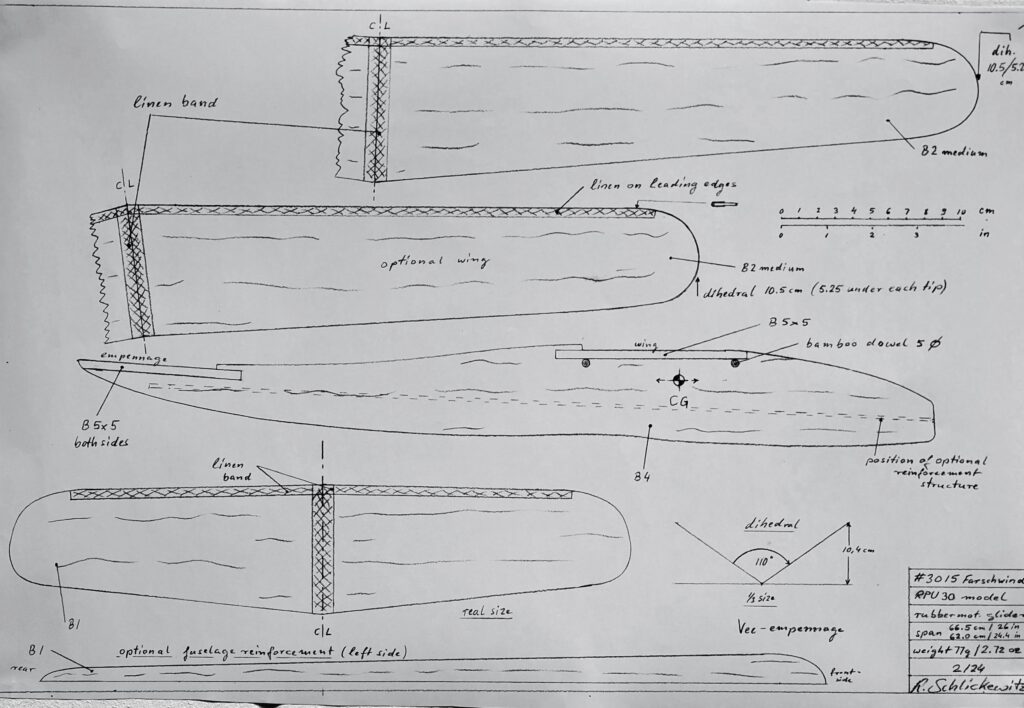 C L
dih.
10.5/5.2
cm
linen band
B2 medium
C L
linen on leading edges
0 1 2 3 4 5 6 7 8 9 10 cm
0 1 2 3 in
optional wing
B2 medium
dihedral 10.5 cm (5.25 under each tip)
B 5x5
empennage
wing
bamboo dowel 5 Ø
CG
B 5x5
both sides
B4
position of optional
reinforcement
structure
linen
band
dihedral
110°
10,4 cm
1/3 size
Vee-empennage
B1
real size
C L
B1
optional fuselage reinforcement (left side)
rear
front-
side
#3015 Farschwind
RPU 30 model
rubbermot. glider
span 66.5 cm / 26 in
62.0 cm / 24.4 in
weight 77g / 2.72 oz
2/24
R. Schlickewitz